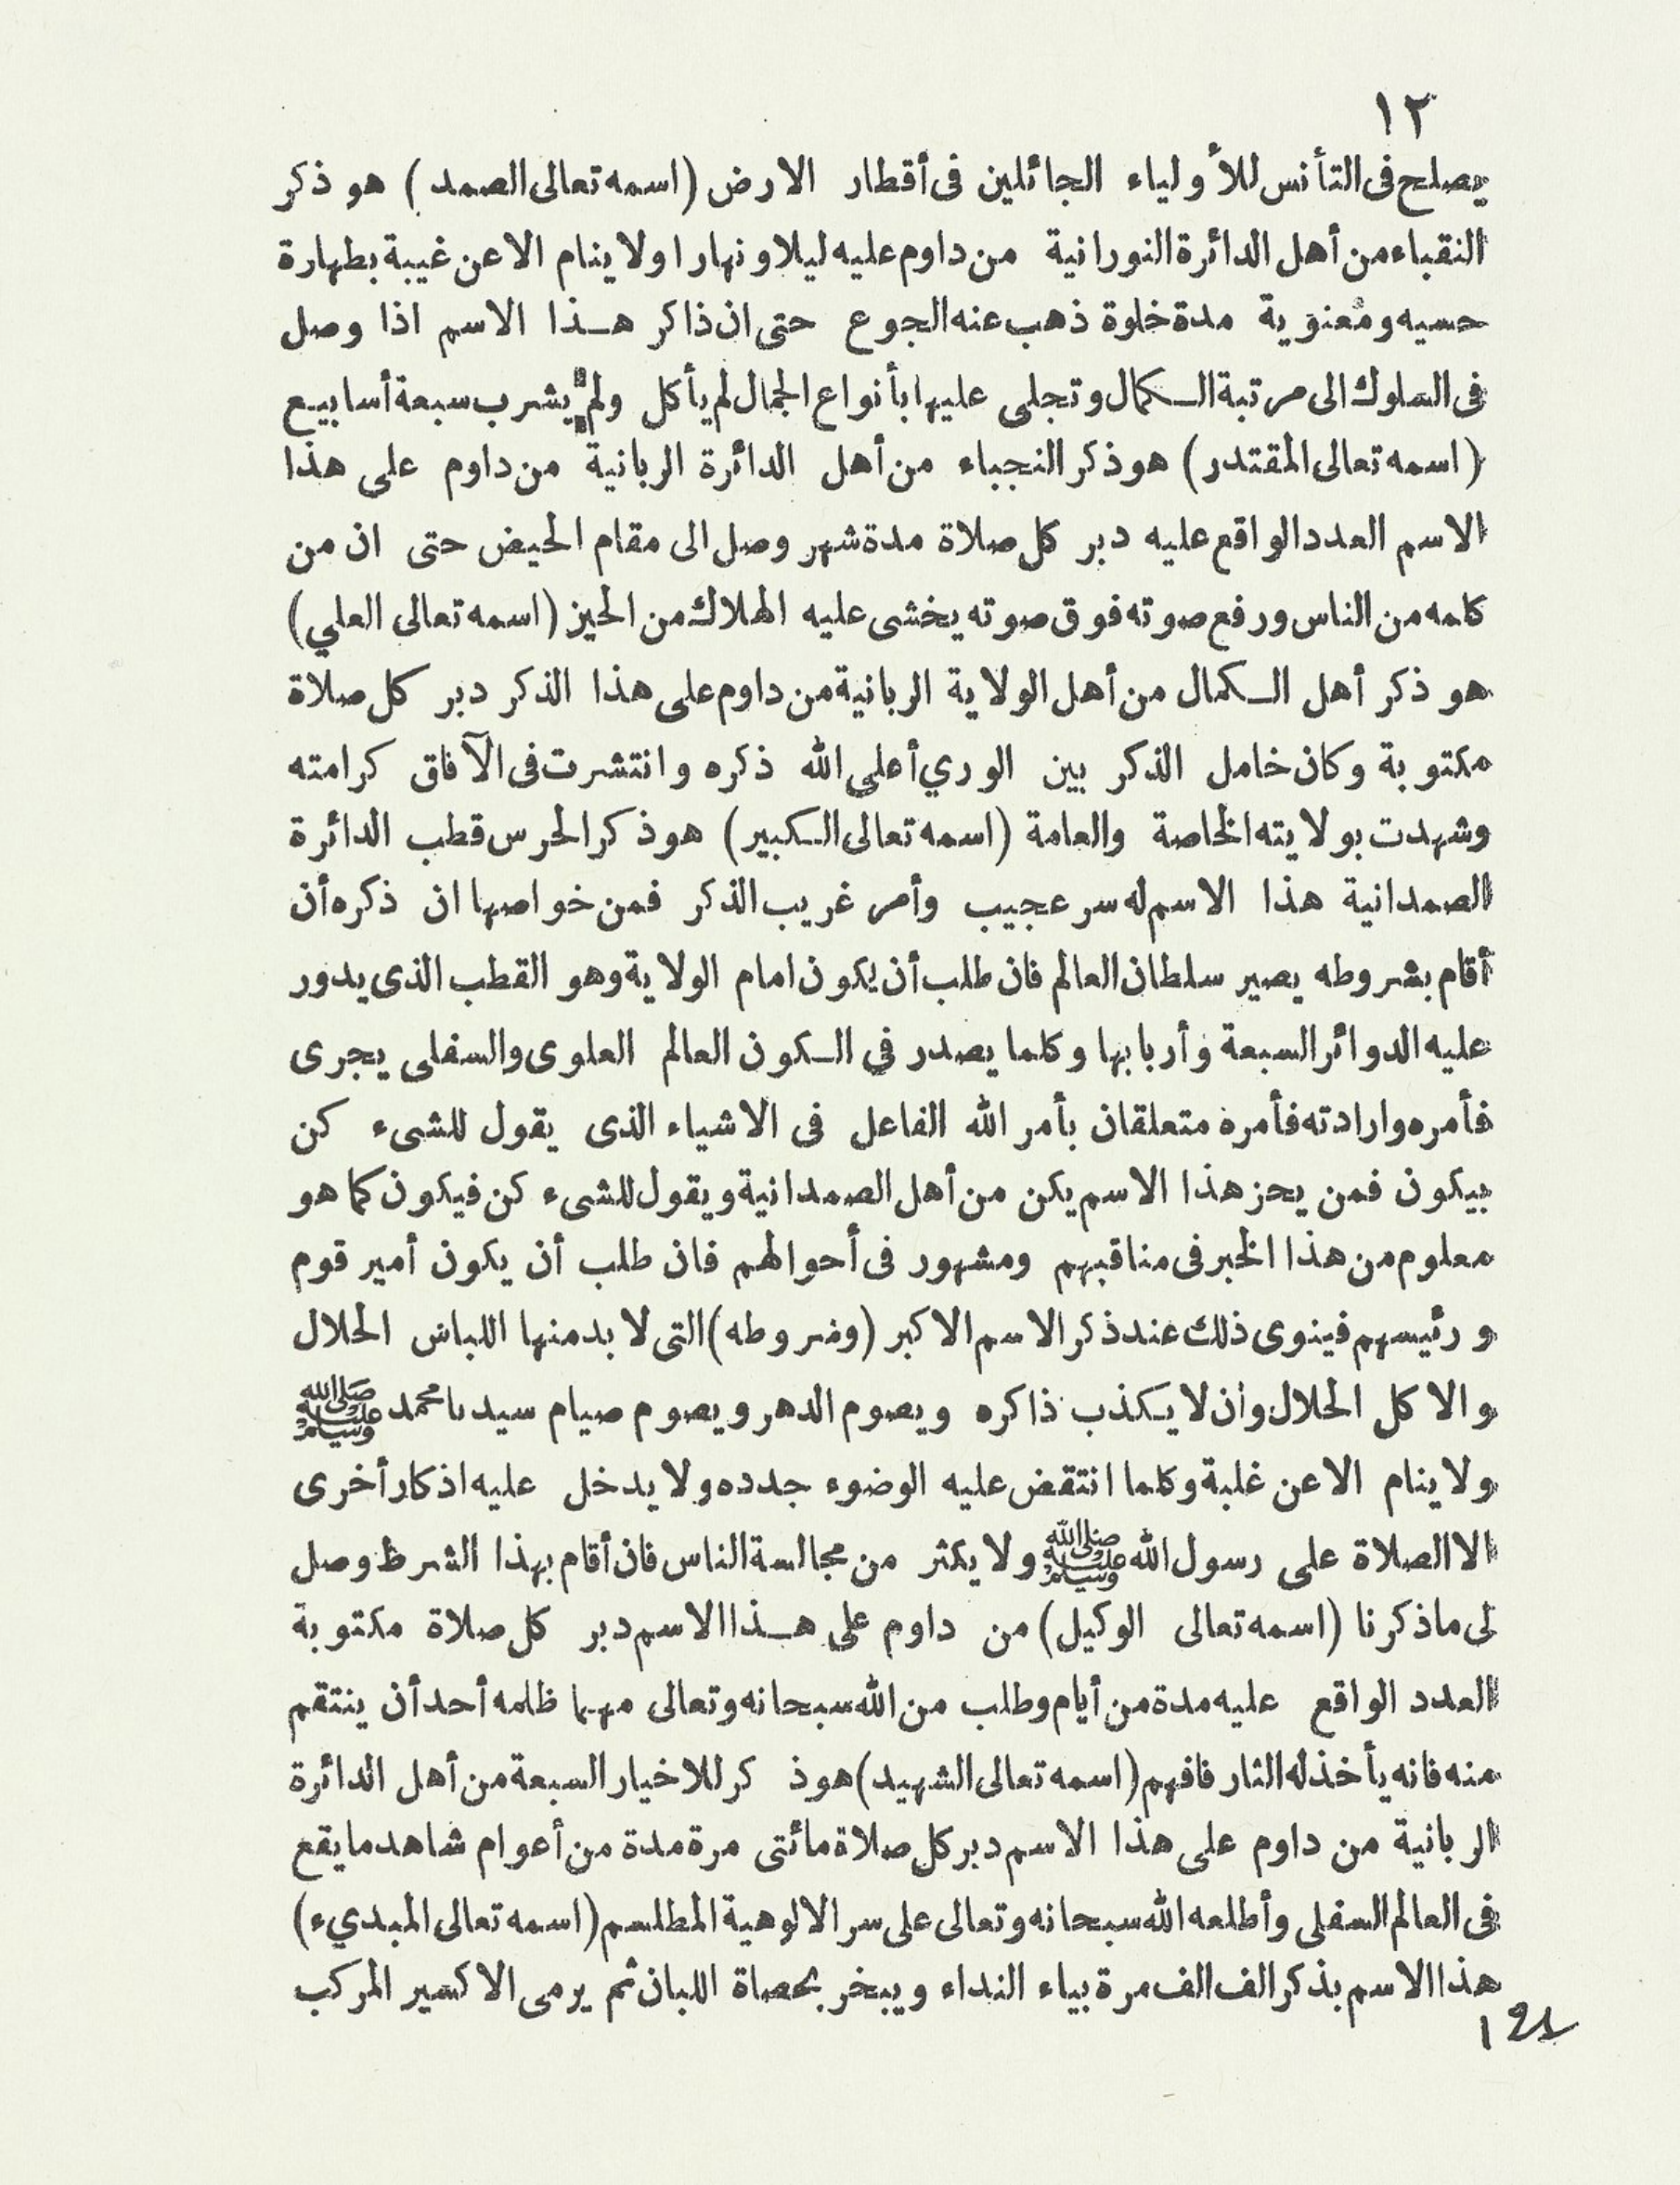 ١٢
يصلح فى التأنس للأولياء الجائلين فى أقطار الارض (اسمه تعالى الصمد) هو ذكر
النقباء من أهل الدائرة النورانية من داوم عليه ليلا ونهارا ولا ينام الا عن غيبة بطهارة
حسيه ومعنوية مدة خلوة ذهب عنه الجوع حتى ان ذاكر هذا الاسم اذا وصل
فى السلوك الى مرتبة الكمال وتجلى عليها بأنواع الجمال لم يأكل ولم يشرب سبعة أسابيع
(اسمه تعالى المقتدر) هو ذكر النجباء من أهل الدائرة الربانية من داوم على هذا
الاسم العدد الواقع عليه دبر كل صلاة مدة شهر وصل الى مقام الحيض حتى ان من
كلمه من الناس ورفع صوته فوق صوته يخشى عليه الهلاك من الحيز (اسمه تعالى العلي)
هو ذكر أهل الكمال من أهل الولاية الربانية من داوم على هذا الذكر دبر كل صلاة
مكتوبة وكان خامل الذكر بين الوري أعلى الله ذكره وانتشرت فى الآفاق كرامته
وشهدت بولايته الخاصة والعامة (اسمه تعالى الكبير) هو ذكر الحرس قطب الدائرة
الصمدانية هذا الاسم له سر عجيب وأمر غريب الذكر فمن خواصها ان ذكره أن
أقام بشروطه يصير سلطان العالم فان طلب أن يكون امام الولاية وهو القطب الذى يدور
عليه الدوائر السبعة وأربابها وكلما يصدر في الكون العالم العلوى والسفلى يجرى
فأمره وارادته فأمره متعلقان بأمر الله الفاعل فى الاشياء الذى يقول للشىء كن
بيكون فمن يحز هذا الاسم يكن من أهل الصمدانية ويقول للشىء كن فيكون كما هو
معلوم من هذا الخبر فى مناقبهم ومشهور فى أحوالهم فان طلب أن يكون أمير قوم
ورئيسهم فينوى ذلك عند ذكر الاسم الاكبر (وشروطه) التى لا بد منها اللباس الحلال
والاكل الحلال وأن لا يكذب ذاكره ويصوم الدهر ويصوم صيام سيدنا محمد ﷺ
ولا ينام الا عن غلبة وكلما انتقض عليه الوضوء جدده ولا يدخل عليه اذكار أخرى
الا الصلاة على رسول الله ﷺ ولا يكثر من مجالسة الناس فان أقام بهذا الشرط وصل
لى ما ذكرنا (اسمه تعالى الوكيل) من داوم على هذا الاسم دبر كل صلاة مكتوبة
العدد الواقع عليه مدة من أيام وطلب من الله سبحانه وتعالى مهما ظلمه أحد أن ينتقم
منه فانه يأخذ له الثار فافهم (اسمه تعالى الشهيد) هو ذكر للاخيار السبعة من أهل الدائرة
الربانية من داوم على هذا الاسم دبر كل صلاة مائتى مرة مدة من أعوام شاهد ما يقع
فى العالم السفلى وأطلعه الله سبحانه وتعالى على سر الالوهية المطلسم (اسمه تعالى المبديء)
هذا الاسم بذكر الف الف مرة بياء النداء ويبخر بحصاة اللبان ثم يرمى الاكسير المركب